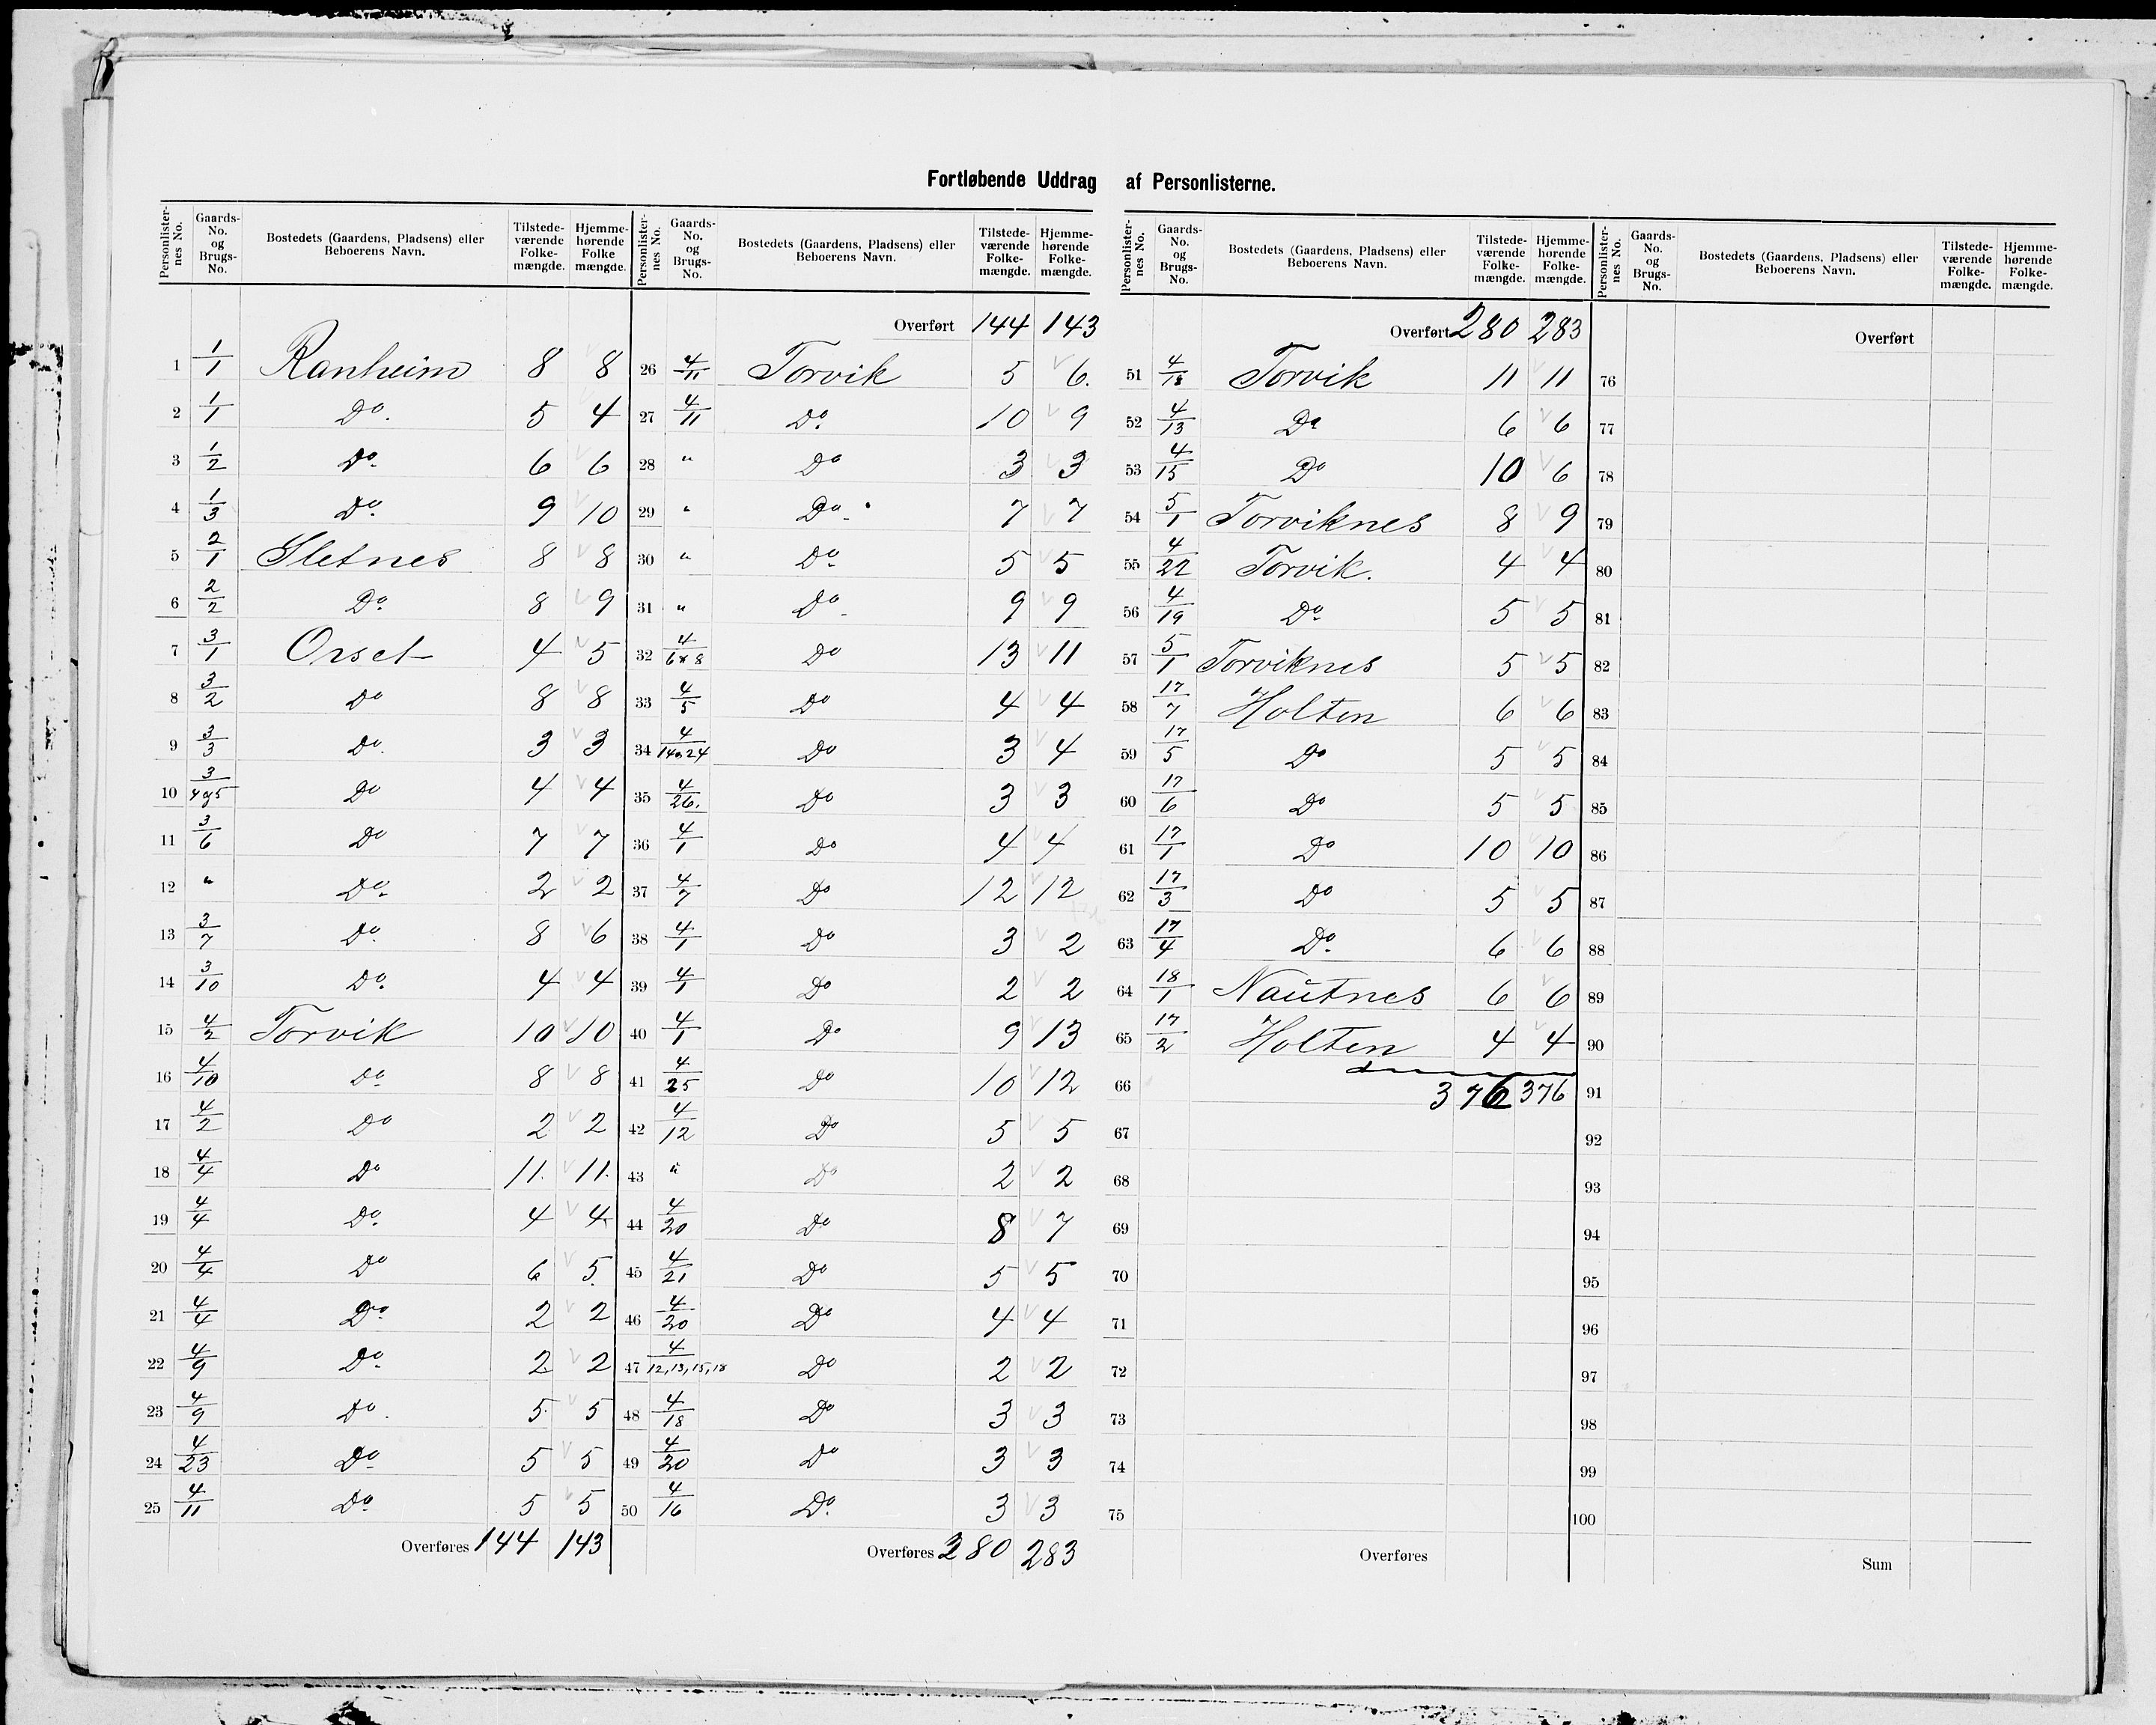 Fortløbende Uddrag af Personlisterne.
Personlister-nes No. Gaards-No. og Brugs-No. Bostedets (Gaardens, Pladsens) eller Beboerens Navn. Tilstede-værende Folke-mængde. Hjemme-hørende Folke mængde.
1 1/1 Ranheim 8 8
2 1/1 Do. 5 4
3 1/2 Do. 6 6
4 1/3 Do. 9 10
5 2/1 Sletnes 8 8
6 2/2 Do. 8 9
7 3/1 Orset 4 5
8 3/2 Do 8 8
9 3/3 Do. 3 3
10 3/4 og 5 Do 4 4
11 3/6 Do 7 7
12 " Do. 2 2
13 3/7 Do. 8 6
14 3/10 Do. 4 4
15 4/2 Torvik 10 10
16 4/10 Do. 8 8
17 4/2 Do 2 2
18 4/4 Do 11. 11.
19 4/4 Do. 4 4
20 4/4 Do 6 5.
21 4/4 Do. 2 2
22 4/9 Do. 2 2
23 4/9 Do. 5. 5
24 4/23 Do. 5 5
25 4/11 Do. 5 5
Overføres 144 143
Personlister-nes No. Gaards-No. og Brugs-No. Bostedets (Gaardens, Pladsens) eller Beboerens Navn. Tilstede-værende Folke-mængde. Hjemme-hørende Folke-mængde.
Overført 144 143
26 4/11 Torvik 5 6.
27 4/11 Do. 10 9
28 " Do 3 3
29 " Do. 7 7
30 " Do. 5 5
31 " Do. 9 9
32 4/6 & 8 Do 13 11
33 4/5 Do 4 4
34 4/14 24 Do 3 4
35 4/26. Do 3 3
36 4/1 Do 4 4
37 4/7 Do 12 12
38 4/1 Do 3 2
39 4/1 Do 2 2
40 4/1 Do 9 13
41 4/25 Do 10 12
42 4/12 Do 5 5
43 " Do 2 2
44 4/20 Do 8 7
45 4/21 Do 5 5
46 4/20 Do 4 4
47 4/12,13,15,18 Do 2 2
48 4/18 Do 3 3
49 4/20 Do 3 3
50 4/16 Do. 3 3
Overføres 280 283
Personlister-nes No. Gaards-No. og Brugs-No. Bostedets (Gaardens, Pladsens) eller Beboerens Navn. Tilstede-værende Folke-mængde. Hjemme-hørende Folke-mængde.
Overført 280 283
51 4/18 Torvik 11 11
52 4/13 Do 6 6
53 4/15 Do 10 6
54 5/1 Torviknes 8 9
55 4/22 Torvik. 4 4
56 4/19 Do. 5 5
57 5/1 Torviknes 5 5
58 17/7 Holten 6 6
59 17/5 Do 5 5
60 17/6 Do 5 5
61 17/1 Do 10 10
62 17/3 Do 5 5
63 17/4 Do. 6 6
64 18/1 Nautnes 6 6
65 17/2 Holten 4 4
66 376 376
67
68
69
70
71
72
73
74
75
Overføres
Personlister-nes No. Gaards-No. og Brugs-No. Bostedets (Gaardens, Pladsens) eller Beboerens Navn. Tilstede-værende Folke-mængde. Hjemme-hørende Folke-mængde.
Overført
76
77
78
79
80
81
82
83
84
85
86
87
88
89
90
91
92
93
94
95
96
97
98
99
100
Sum